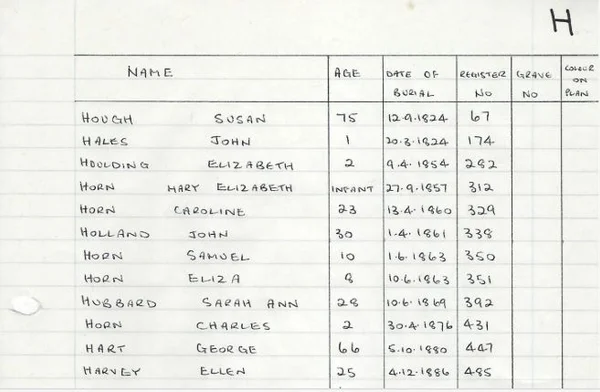 H
NAME AGE DATE OF BURIAL REGISTER NO GRAVE NO COLOUR ON PLAN
HOUGH SUSAN 75 12.9.1824 67
HALES JOHN 1 20.3.1824 174
HOULDING ELIZABETH 2 9.4.1854 282
HORN MARY ELIZABETH INFANT 27.9.1857 312
HORN CAROLINE 23 13.4.1860 329
HOLLAND JOHN 30 1.4.1861 338
HORN SAMUEL 10 1.6.1863 350
HORN ELIZA 8 10.6.1863 351
HUBBARD SARAH ANN 28 10.6.1869 392
HORN CHARLES 2 30.4.1876 431
HART GEORGE 66 5.10.1880 447
HARVEY ELLEN 25 4.12.1886 485